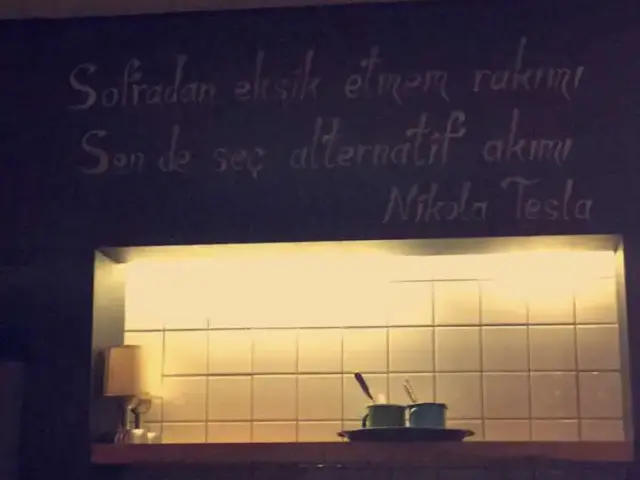 Sofradan eksik etmem rakımı
Sen de seç alternatif akımı
Nikola Tesla